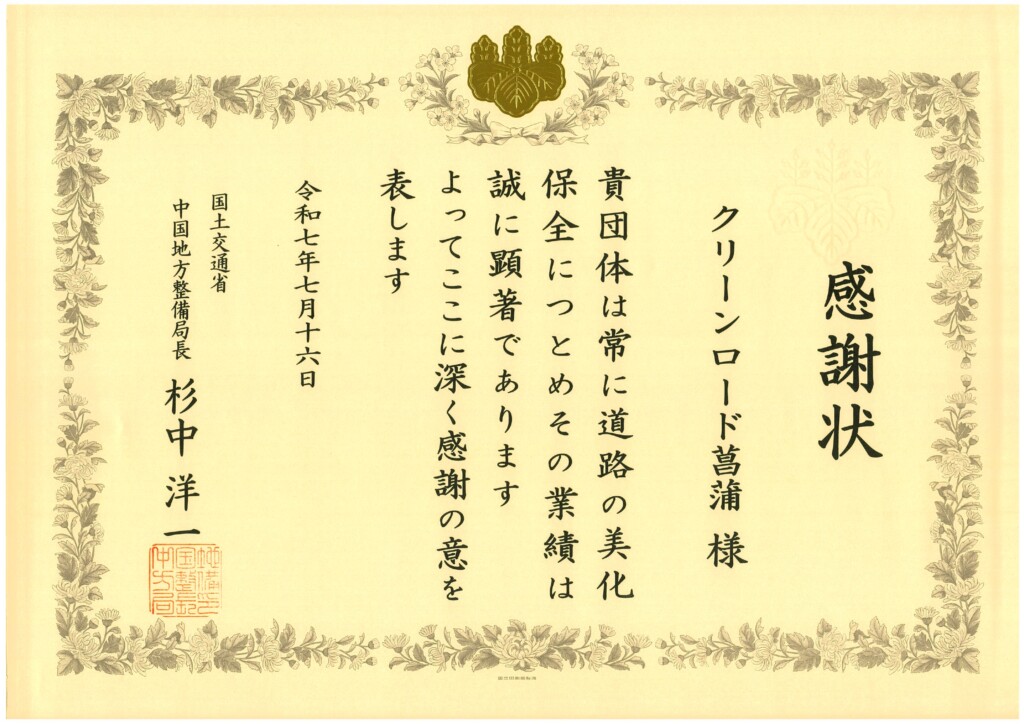 感謝状
クリーンロード菖蒲 様
貴団体は常に道路の美化
保全につとめその業績は
誠に顕著であります
よってここに深く感謝の意を
表します
令和七年七月十六日
国土交通省
中国地方整備局長 杉中 洋一